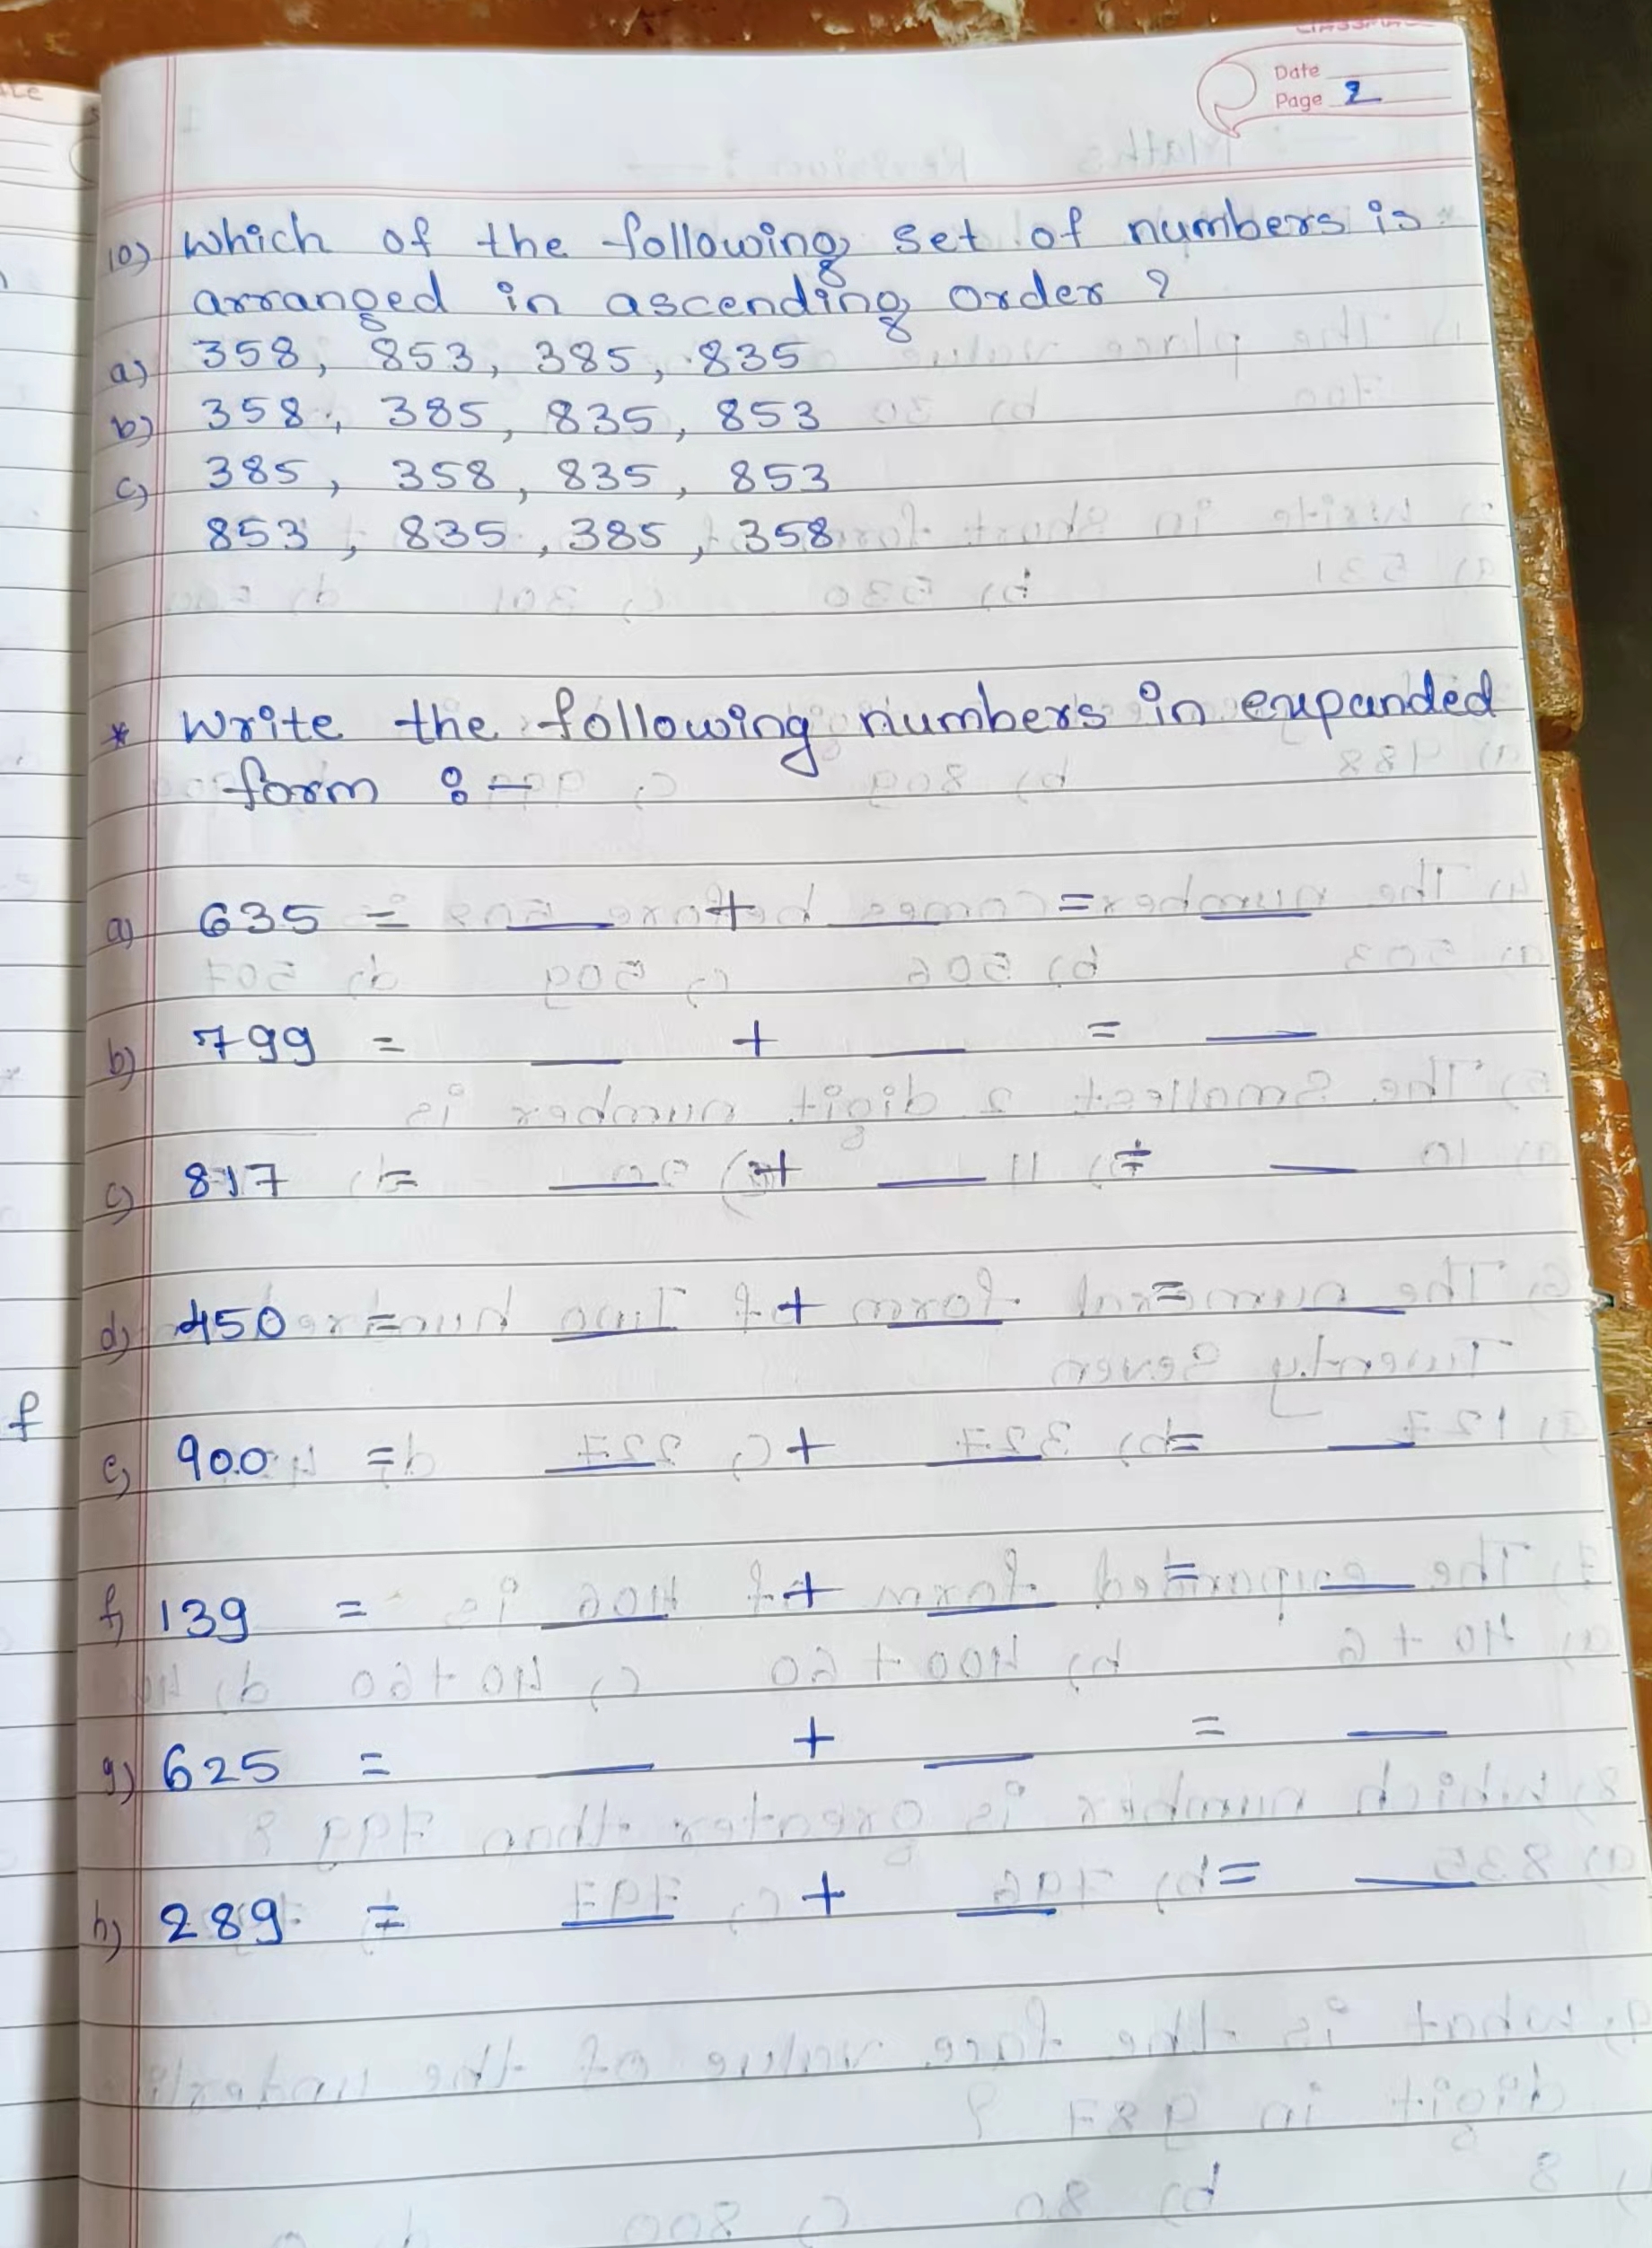 Date
Page 2
10) Which of the following set of numbers is
arranged in ascending order ?
a) 358, 853, 385, 835
b) 358, 385, 835, 853
c) 385, 358, 835, 853
853, 835, 385, 358
* Write the following numbers in expanded
form :-
a) 635 = ___ + ___ = ___
b) 799 = ___ + ___ = ___
c) 817 = ___ + ___ = ___
d) 450 = ___ + ___ = ___
e) 900 = ___ + ___ = ___
f) 139 = ___ + ___ = ___
g) 625 = ___ + ___ = ___
h) 289 = ___ + ___ = ___
f